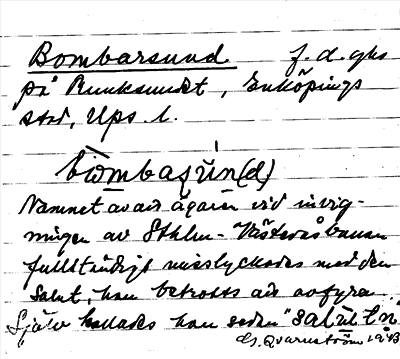 Bombarsund f. d. ghs
på Runksundet, Enköpings
stad, Ups. l.
bombaşun(d)
Namnet av att ägaren vid invig-
ningen av Sthlm-Västeråsbanan
fullständigt misslyckades med den
salut, han betrotts att avfyra.
Själv kallades han sedan "saluten"
G. Qvarnström 1943